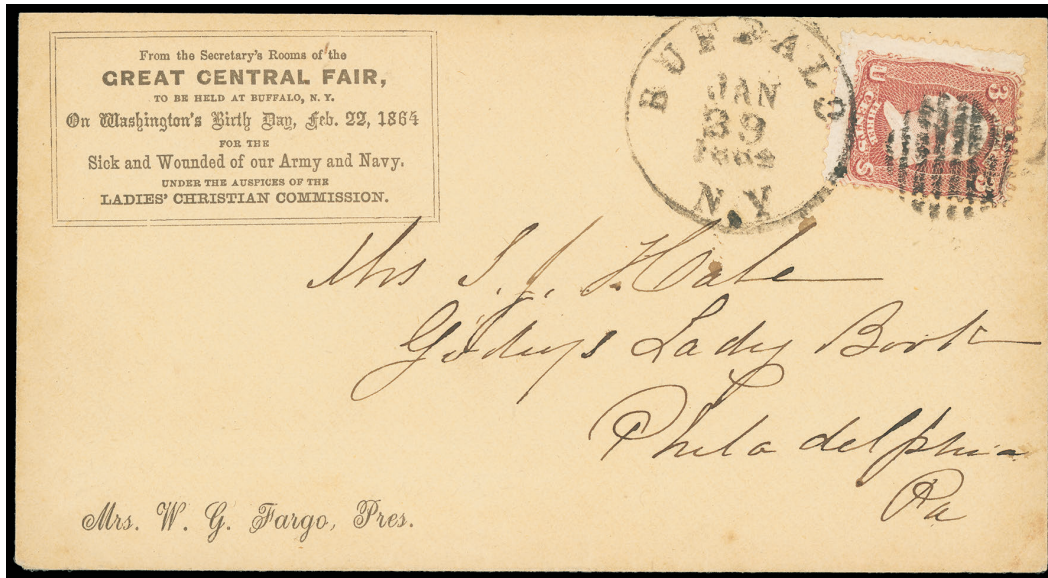 From the Secretary's Rooms of the
GREAT CENTRAL FAIR,
TO BE HELD AT BUFFALO, N. Y.
On Washington's Birth Day, Feb. 22, 1864
FOR THE
Sick and Wounded of our Army and Navy.
UNDER THE AUSPICES OF THE
LADIES' CHRISTIAN COMMISSION.
BUFFALO
JAN
1864
N.Y
U 3
S 3
THREE CENTS
Mrs S. J. Hale
Godeys Lady Book
Philadelphia
Pa
Mrs. W. G. Fargo, Pres.